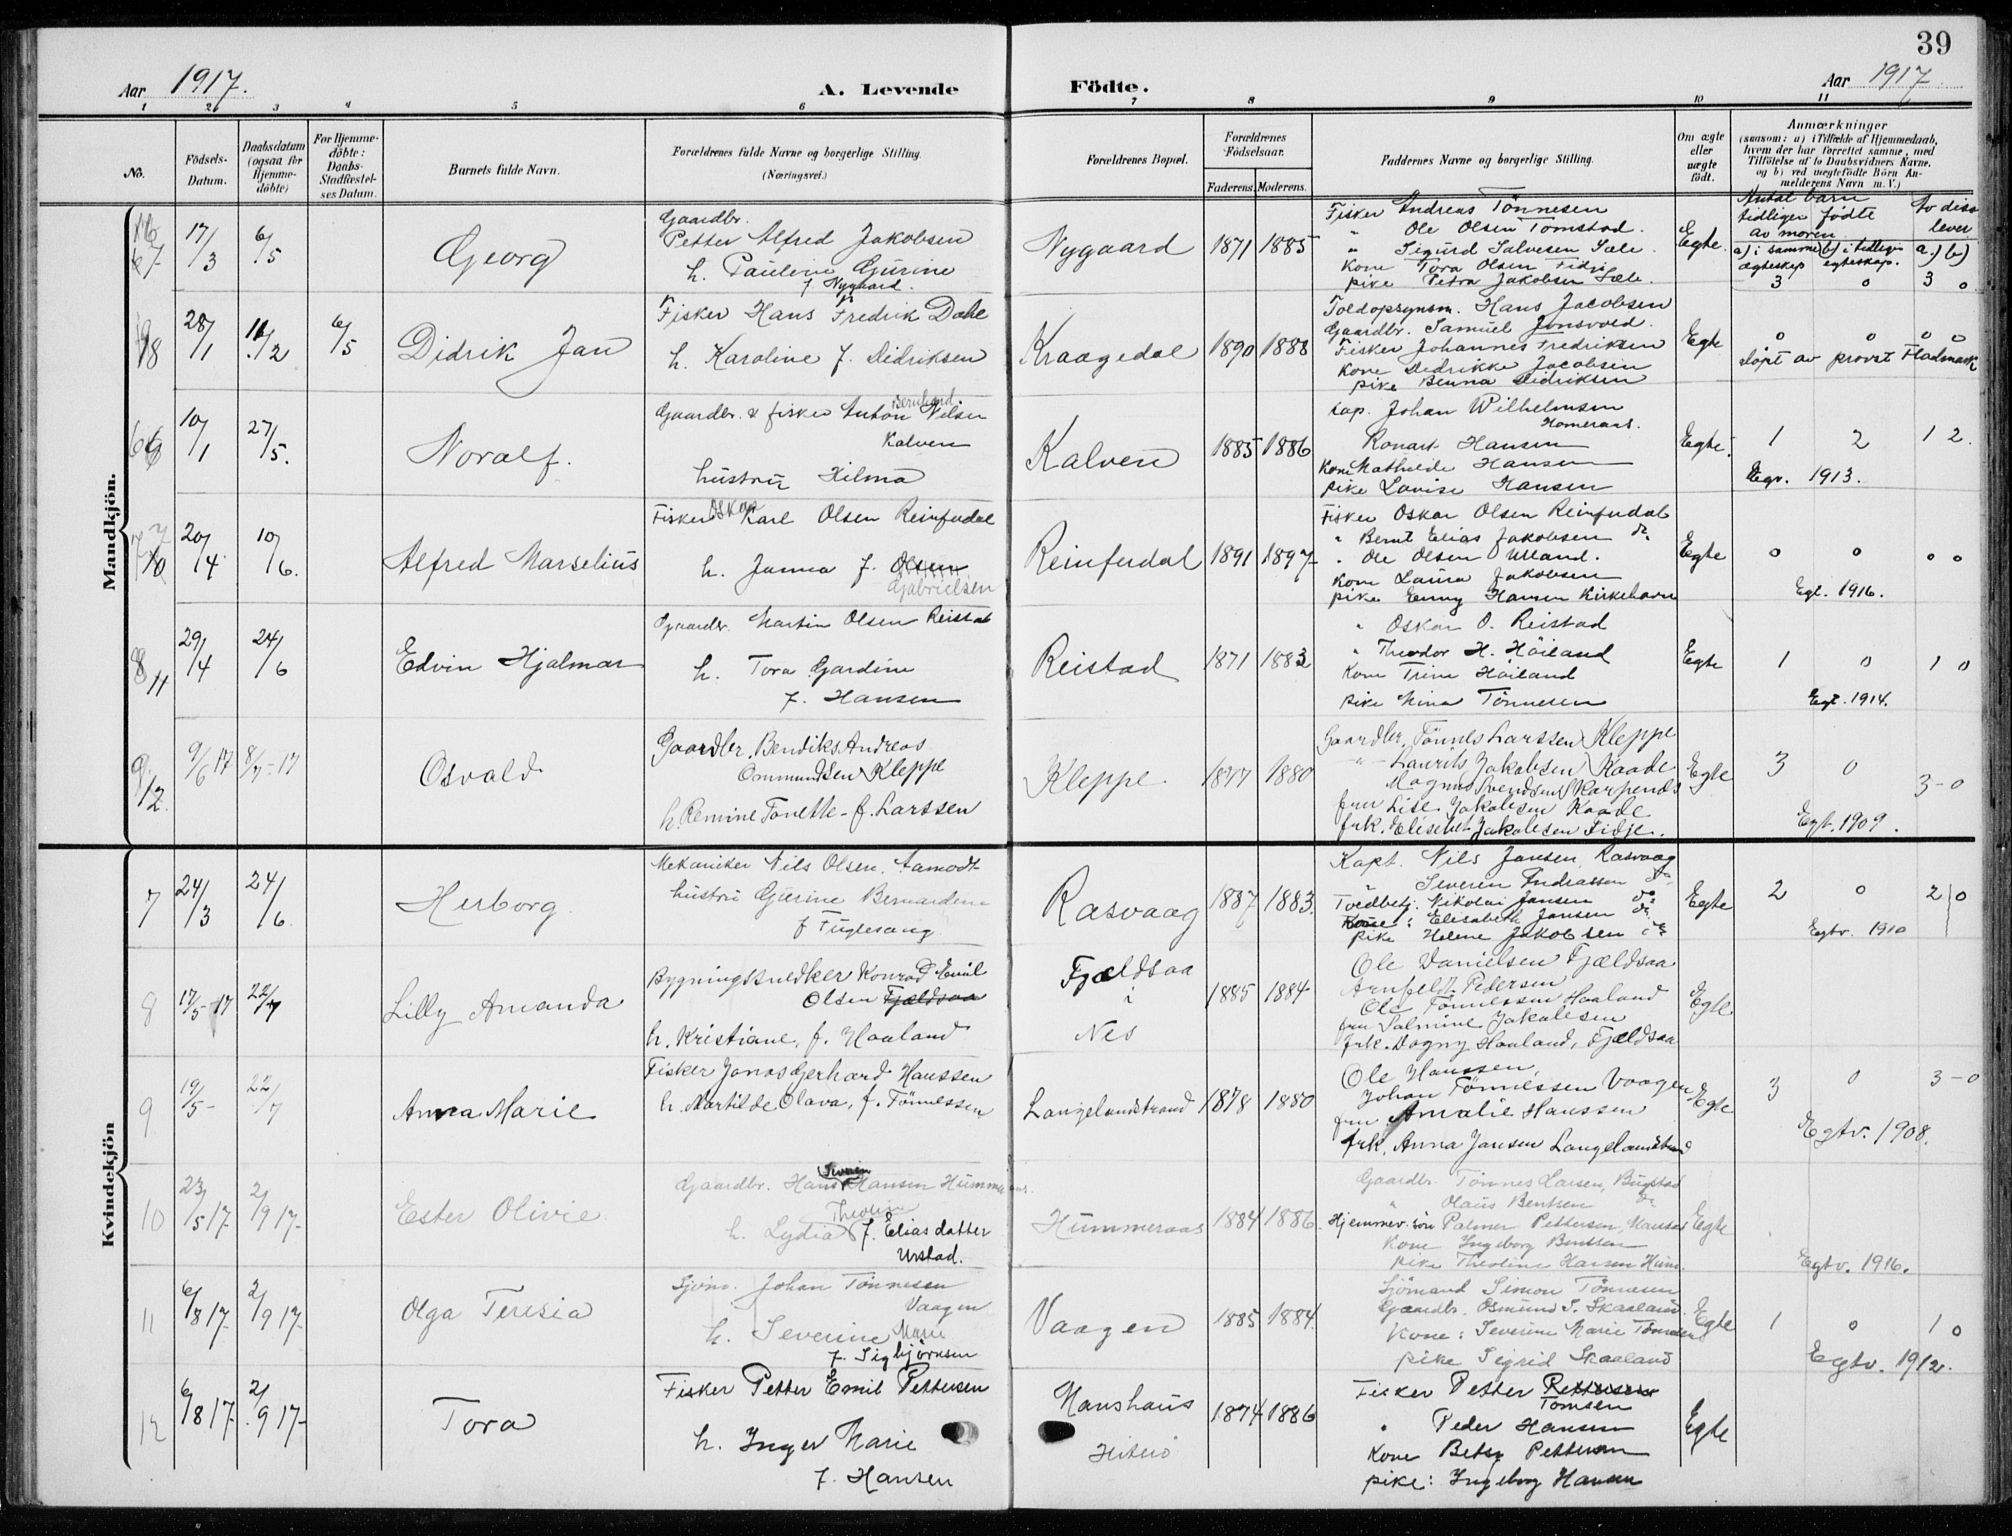 39
Aar 1917.
A. Levende Födte.
Aar 1917
1 2 3 4 5 6 7 8 9 10 11
No.
Födsels-Datum.
Daabsdatum (ogsaa for Hjemme-döbte)
For Hjemme-döbte: Daabs-Stadfæstel-ses Datum.
Barnets fulde Navn.
Forældrenes fulde Navne og borgerlige Stilling.
(Næringsvei.)
Forældrenes Bopæl.
Forældrenes Födselsaar.
Faderens. Moderens.
Faddernes Navne og borgerlige Stilling.
Om ægte eller uægte födt.
Anmærkninger
(saasom: a) i Tilfælde af Hjemmedaab, hvem der har forrettet samme, med Tilföielse af to Daabsvidners Navne. og b) ved uægtefödte Börn An-melderens Navn m. V.)
Mandkjön.
17/3 6/5
Georg
Gaardbr.
Petter Alfred Jakobsen
h. Pauline Gurine
f Nygaard.
Nygaard 1871 1885
Fisker Andreas Tönnesen
" Ole Olsen Tomstad.
" Sigurd Salvesen Sæle
Kone Tora Olsen Fidje
pike Petra Jakobsen Sæle.
Egte.
Antal barn tidligere födte av moren
Av disse lever
a) i samme ægteskap b) i tidligere egteskap. a) b)
3 0 3 0
18 28/1 11/2 6/5
Didrik Jan
Fisker Hans Fredrik Dahl
h. Karoline f. Didriksen
Kraagedal 1890 1888
Toldopsynsm. Hans Jacobsen
Gaardbr. Samuel Jonsvold.
Fisker Johannes Fredriksen
Kone Didrikke Jacobsen
pike Benna Didriksen
Egte
0 0 0 0
döpt av provst Fladmark
10/1 27/5.
Noralf.
Gaardbr. & fisker Anton Bernhard Nilsen
Kalven
hustru Hilma
Kalven 1885 1886
cap. Johan Wilhelmsen
Homeraas.
Ronart Hansen
Kone Mathilde Hansen
pike Lovise Hansen
Egte.
1 2 1 2.
Egv. 1913.
20/4 10/6.
Alfred Marselius
Fisker Oskar Karl Olsen Reinfudal
h. Janna f. Olsen
Gabrielsen
Reinfudal 1891 1897
Fisker Oskar Olsen Reinfudal
" Bernt Elias Jakobsen do.
" Ole Olsen Ulland.
Kone Laura Jakobsen
pike Enny Hansen Kirkehavn
Egte
0 0 0 0
Egt. 1916.
8 11 29/4 24/6
Edvin Hjalmar
Gaardbr. Martin Olsen Reistad
h. Tora Gardine
f. Hansen
Reistad 1871 1883
" Oskar O. Reistad
" Theodor H. Höiland
Kone Trine Höiland
pike Mina Tönnesen
Egte
1 0 1 0
Egt. 1914.
9 12. 9/6 17 8/7-17
Osvald
Gaardbr. Bendiks Andreas
Ommundsen Kleppe
h. Remine Tonette - f. Larssen
Kleppe. 1877 1880
Gaardbr. Tönnes Larssen Kleppe
" Laurits Jakobsen Kaade
Magnus Svendsen Karpenes
fru Lise Jakobsen Kaade
frk. Elisebet Jakobsen Fidje.
Egte
3 0 3-0
Egt. 1909.
Kvindekjön
7 24/3 24/6.
Herborg
Mekaniker Nils Olsen Aamodt
hustru Gurine Bernardine
f Fuglesang
Rasvaag 1887 1883.
Kapt. Nils Jansen, Rasvaag
" Severin Andreassen do.
Toldbetj. Nikolai Jansen do
Kone: Elisabeth Jansen do
pike Helene Jakobsen do
Egte
2 0 2 0
Egtv. 1910
8 17/5-17 22/7
Lilly Amanda
Bygningssnedker Konrad Emil
Olsen Fjældsaa
h. Kristiane, f. Haaland
Fjældsaa
i
Nes
1885 1884
Ole Danielsen Fjældsaa
Arnfeldt Pedersen
Ole Tönnessen Haaland
fru Salmine Jakobsen
frk. Dagny Haaland, Fjældsaa
Egte
9 19/5- 22/7
Anna Marie
Fisker Jonas Gerhard Hanssen
h. Martilde Olava, f. Tönnessen
Langelandstrand 1878 1880
Ole Hanssen,
Johan Tönnessen Vaagen
fru Amalie Hanssen
frk. Anna Jansen Langelandstrand
Egte
3 0 3-0
Egtv. 1908.
10 23/5 17- 2/9 17-
Ester Olivie
Gaardbr. Hans Severin Hansen Hummeraas.
h. Lydia Theoline f. Eliasdatter
Urstad.
Hummeraas 1884 1886
Gaardbr. Tönnes Larsen, Bugstad
" Olaus Bentsen do
Hjemmev. sön Palmer Pettersen, Hanshus
Kone Ingeborg Bentsen
pike Theoline Hansen Hum.
Egte
Egtv. 1916.
11 6/8 17- 2/9 17-
Olga Teresia
Sjöm. Johan Tönnesen
Vaagen
h. Severine Marie
f. Sigbjörnsen
Vaagen 1885 1884.
Sjömand Simon Tönnesen
Gaardbr. Osmund S. Skaaland
Kone: Severine Marie Tönnesen
pike Sigrid Skaaland
Egte
1 0 1 0
Egtv. 1912.
12 6/8 17- 2/9 17-
Tora
Fisker Petter Emil Pettersen
h. Inger Marie
f. Hansen
Hanshaus
Hiterö
1874 1886
Fisker Petter Pettersen
Tomsen
" Peder Hansen
Kone Betsy Pettersen
pike: Ingeborg Hansen
Egte